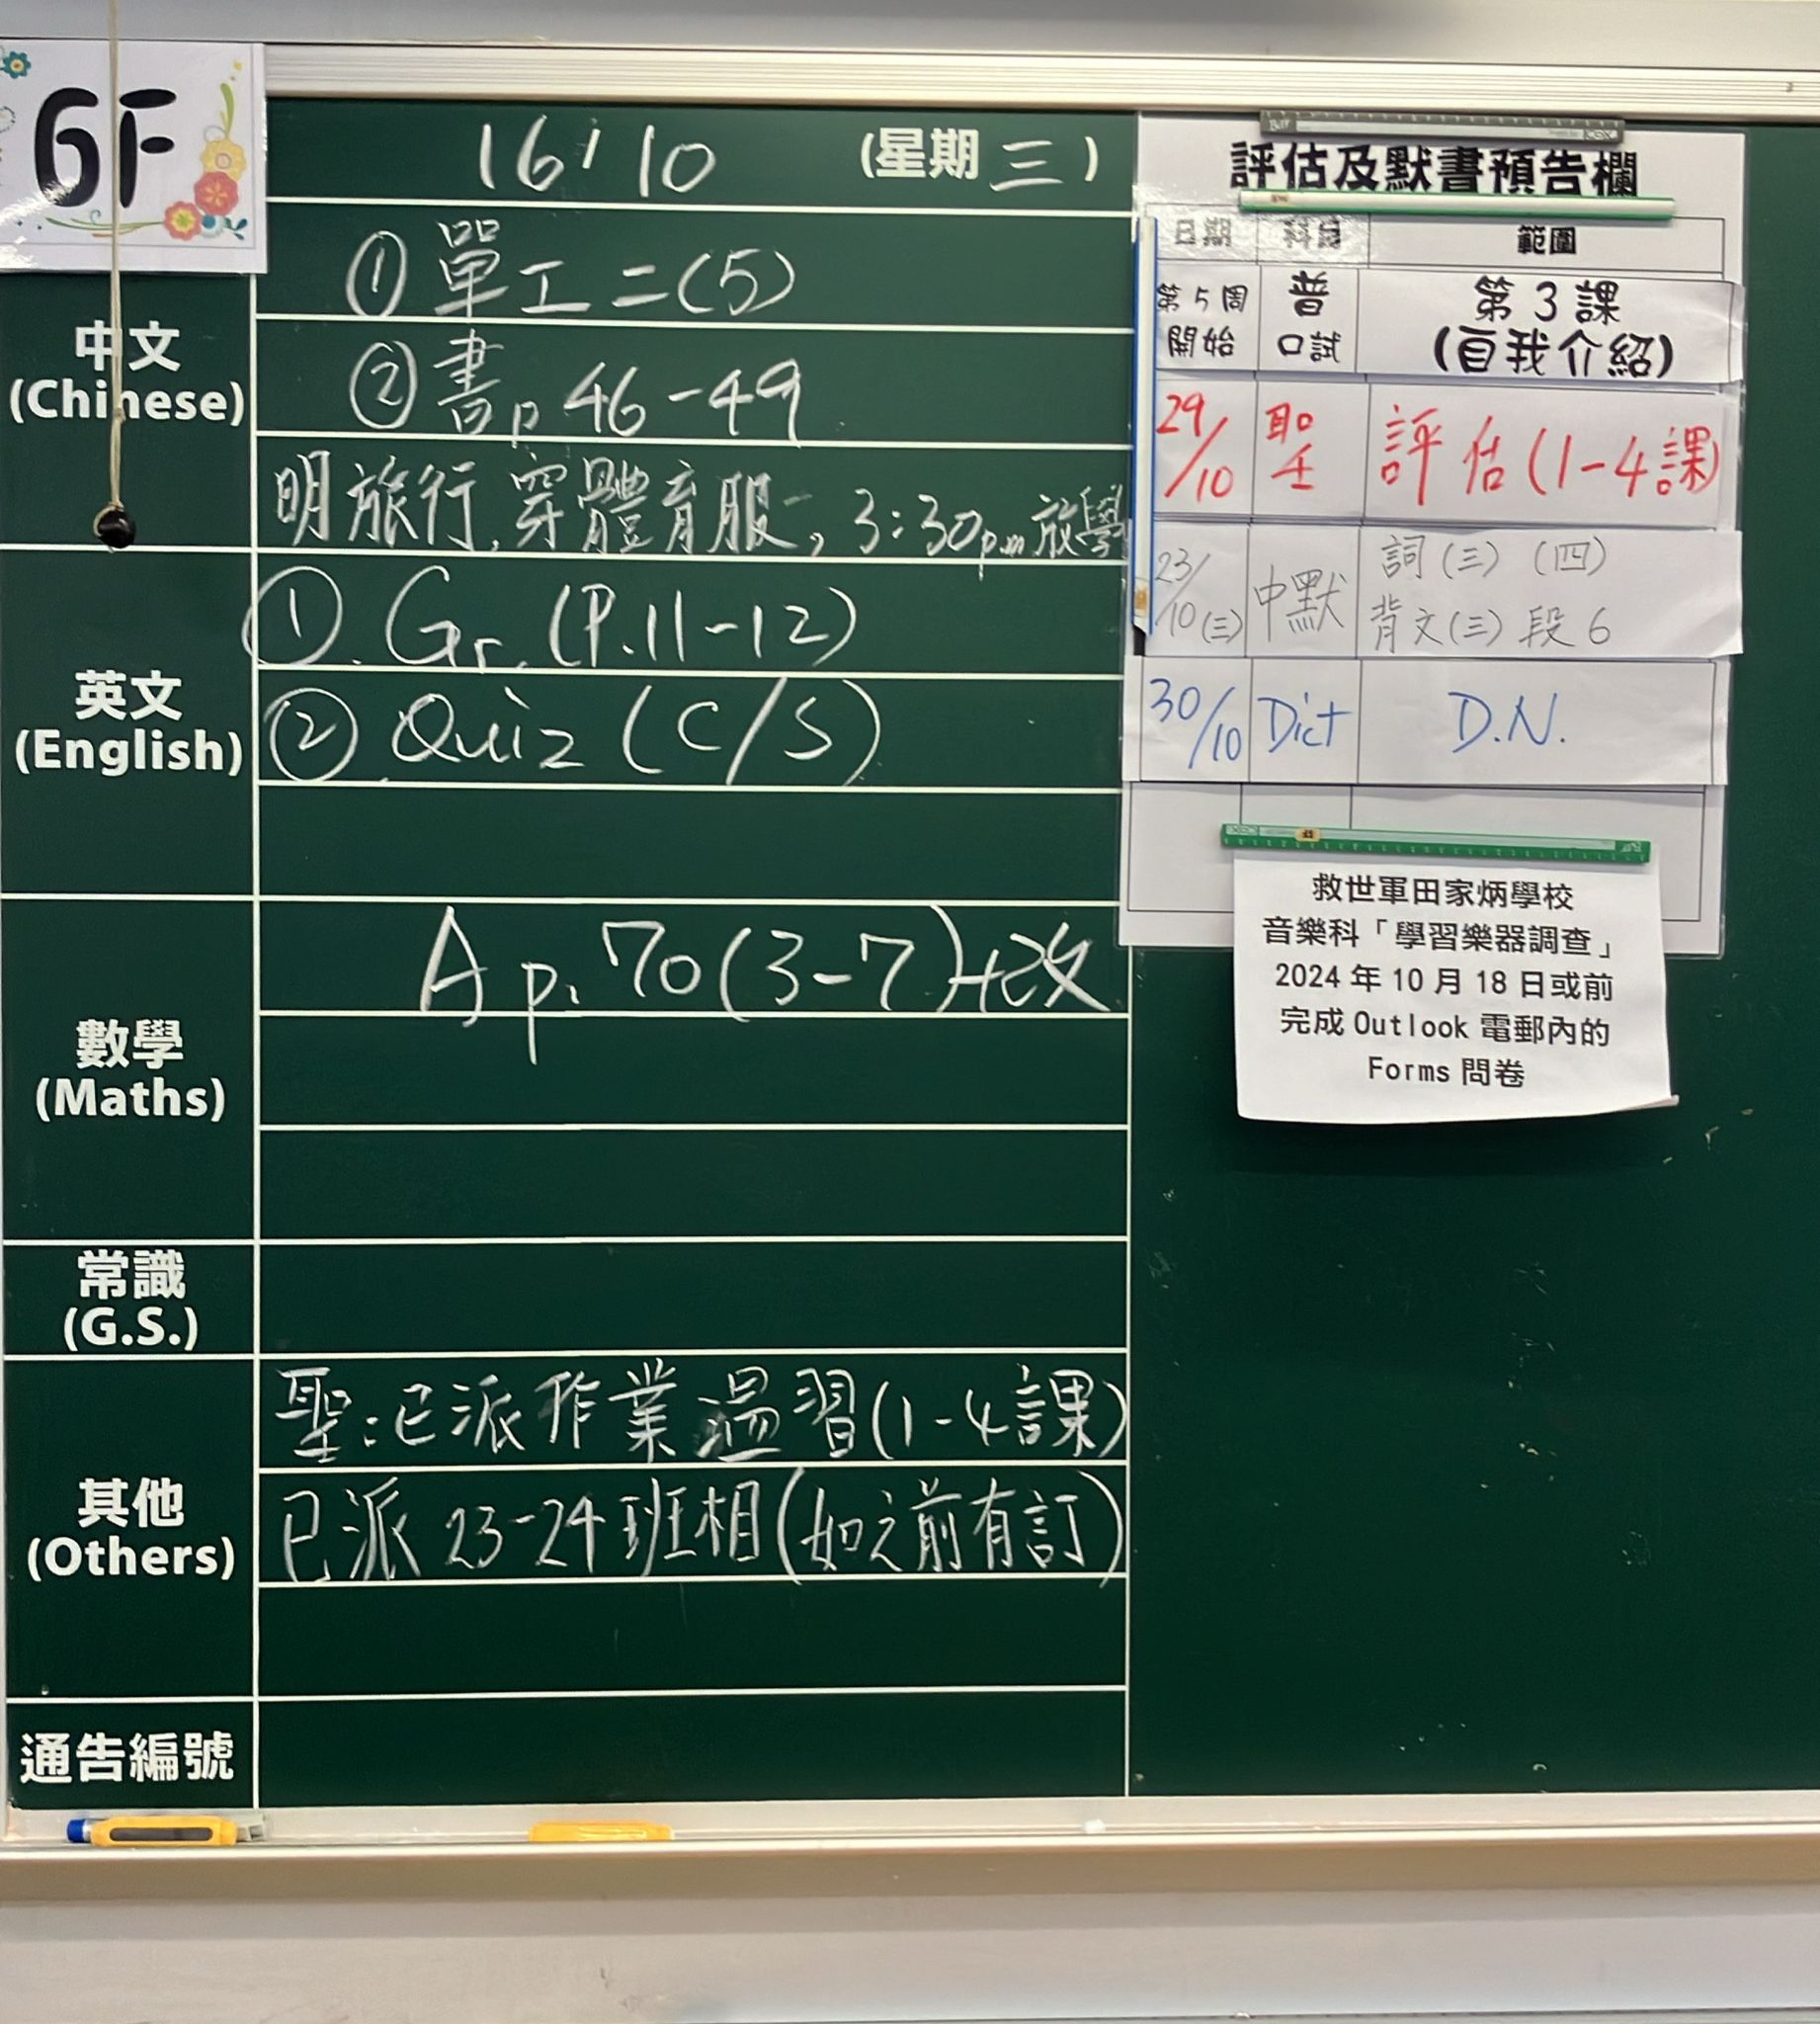 6F
16/10 (星期三)
中文
(Chinese)
① 單工二(5)
② 書p 46-49
明旅行,穿體育服,3:30pm放學
英文
(English)
①. Gr. (P.11-12)
② Quiz (C/S)
數學
(Maths)
A p. 70(3-7)+改
常識
(G.S.)
其他
(Others)
聖:已派作業溫習(1-4課)
已派23-24班相(如之前有訂)
通告編號
評估及默書預告欄
日期 科目 範圍
第5周開始 普口試 第3課(自我介紹)
29/10 聖 評估(1-4課)
23/10(三) 中默 詞(三) (四)
背文(三) 段6
30/10 Dict D.N.
救世軍田家炳學校
音樂科「學習樂器調查」
2024年10月18日或前
完成Outlook電郵內的
Forms問卷